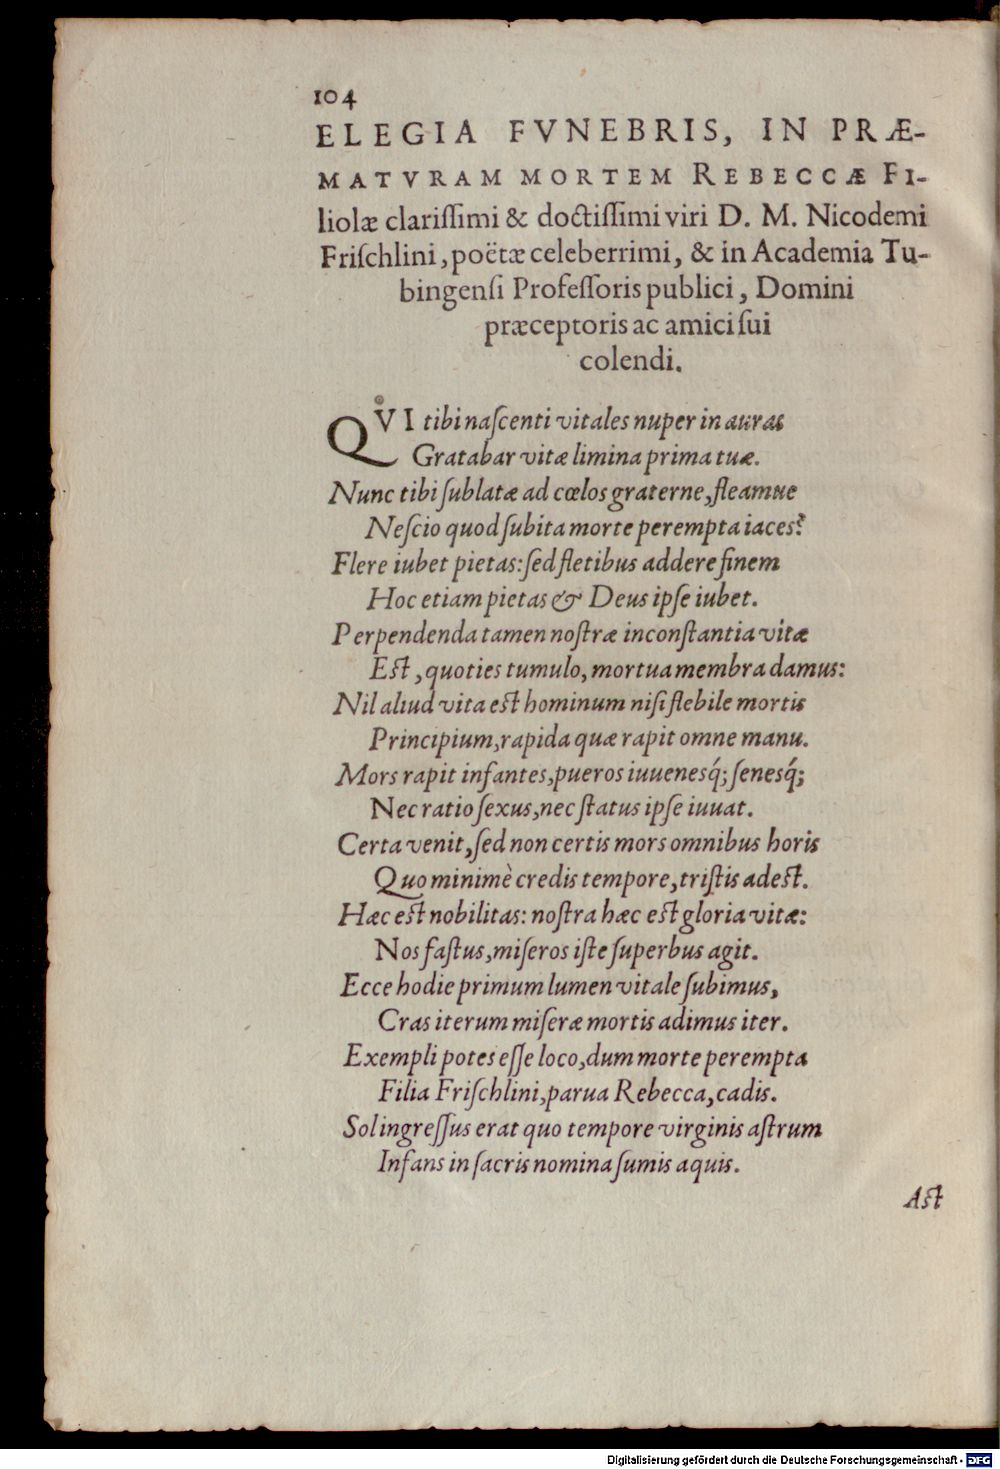 104
ELEGIA FVNEBRIS, IN PRÆ-
MATVRAM MORTEM REBECCÆ FI-
liolæ clariſſimi & doctiſſimi viri D. M. Nicodemi
Friſchlini, poëtæ celeberrimi, & in Academia Tu-
bingenſi Profeſſoris publici, Domini
præceptoris ac amici ſui
colendi.
QVI tibi naſcenti vitales nuper in auras
Gratabar vitæ limina prima tuæ.
Nunc tibi ſublatæ ad cœlos graterne, fleamue
Neſcio quod ſubita morte perempta iaces?
Flere iubet pietas: ſed fletibus addere finem
Hoc etiam pietas & Deus ipſe iubet.
Perpendenda tamen noſtræ inconſtantia vitæ
Eſt, quoties tumulo, mortua membra damus:
Nil aliud vita eſt hominum niſi flebile mortis
Principium, rapida quæ rapit omne manu.
Mors rapit infantes, pueros iuuenesq́; ſenesq́;
Nec ratio ſexus, nec ſtatus ipſe iuuat.
Certa venit, ſed non certis mors omnibus horis
Quo minimè credis tempore, triſtis adeſt.
Hæc eſt nobilitas: noſtra hæc eſt gloria vitæ:
Nos faſtus, miſeros iſte ſuperbus agit.
Ecce hodie primum lumen vitale ſubimus,
Cras iterum miſeræ mortis adimus iter.
Exempli potes eſſe loco, dum morte perempta
Filia Friſchlini, parua Rebecca, cadis.
Sol ingreſſus erat quo tempore virginis aſtrum
Infans in ſacris nomina ſumis aquis.
Aſt
Digitalisierung gefördert durch die Deutsche Forschungsgemeinschaft - DFG